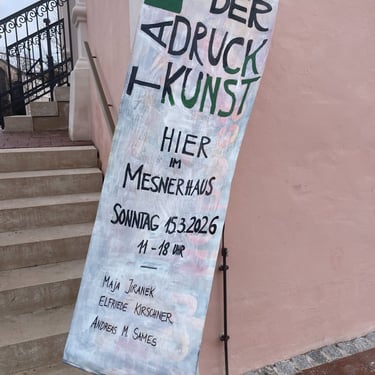 TAG
DER
DRUCK
KUNST
HIER
IM
MESNERHAUS
SONNTAG 15.3.2026
11-18 UHR
MAJA JIRANEK
ELFRIEDE KIRSCHNER
ANDREAS M SAMES